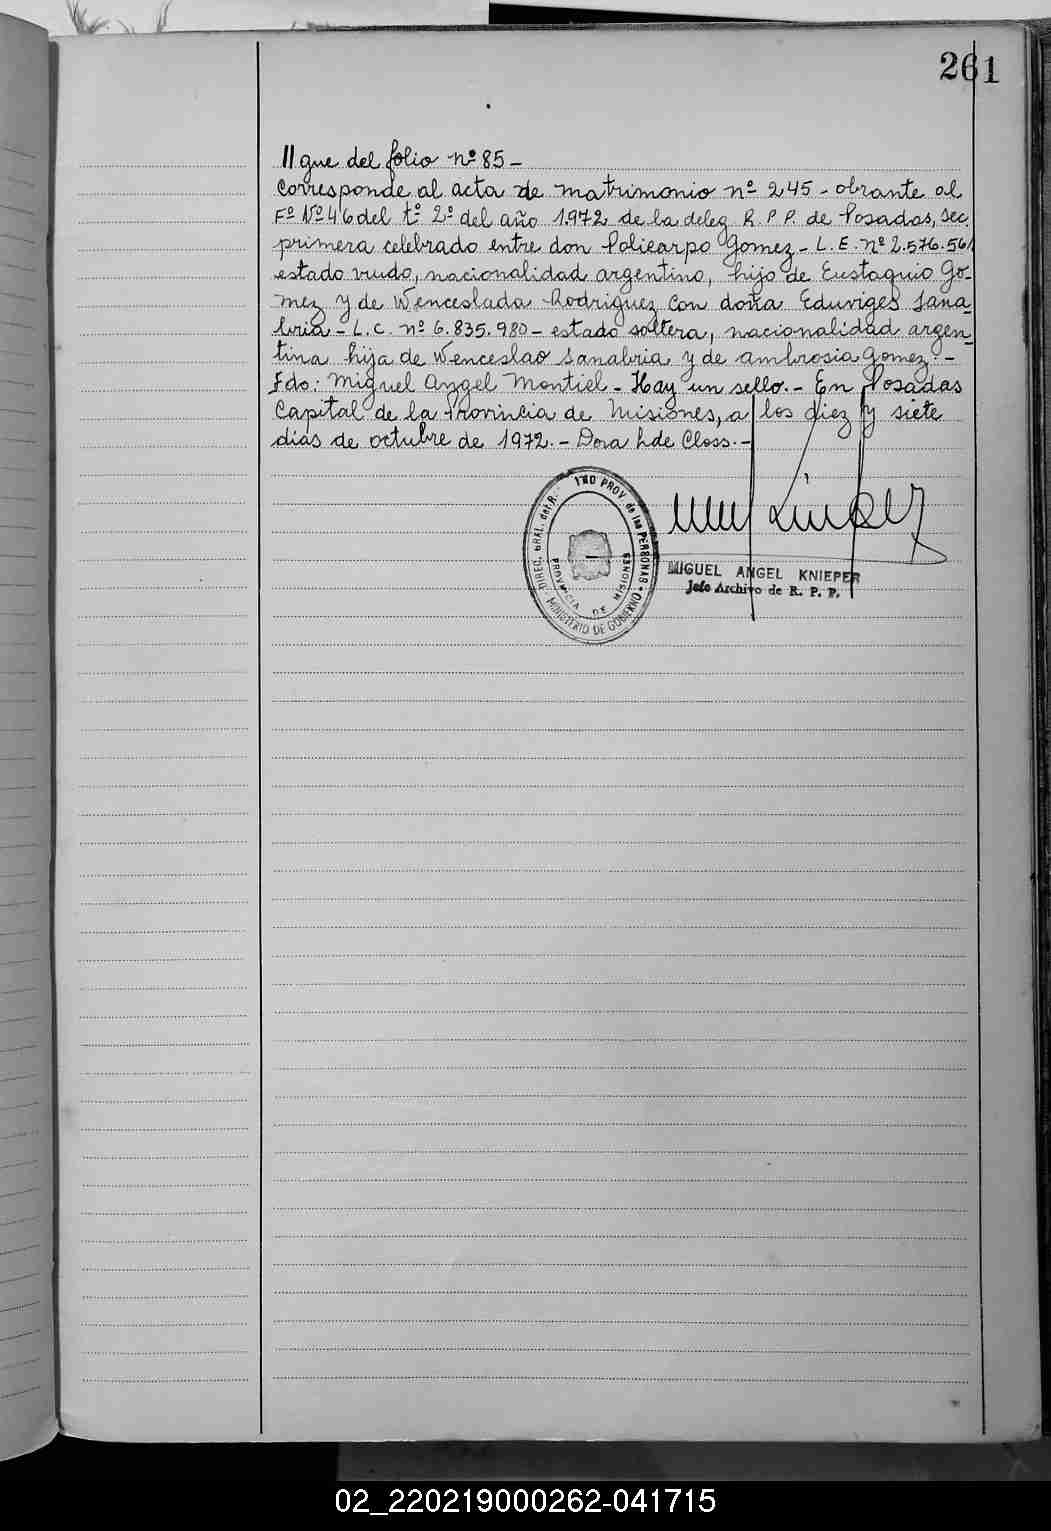 261
// gue del folio nº 85 -
Corresponde al acta de matrimonio nº 245 - obrante al
Fº Nº 46 del tº 2º del año 1972 de la deleg R. P. P. de Posadas, sec.
primera celebrado entre don Policarpo Gomez - L. E. nº 2.576.561
estado viudo, nacionalidad argentino, hijo de Eustaquio Go-
mez y de Wenceslada Rodriguez con doña Eduviges Sana-
bria - L. C. nº 6.835.980 - estado soltera, nacionalidad argen-
tina hija de Wenceslao Sanabria y de Ambrosia Gomez. -
Fdo: Miguel Angel Montiel - Hay un sello. - En Posadas
Capital de la Provincia de Misiones, a los diez y siete
dias de octubre de 1972. - Dora L de Closs. -
DIREC. GRAL. del R. PROV. de las PERSONAS
MINISTERIO DE GOBIERNO
PROVINCIA DE MISIONES
MIGUEL ANGEL KNIEPER
Jefe Archivo de R. P. P.
02_220219000262-041715